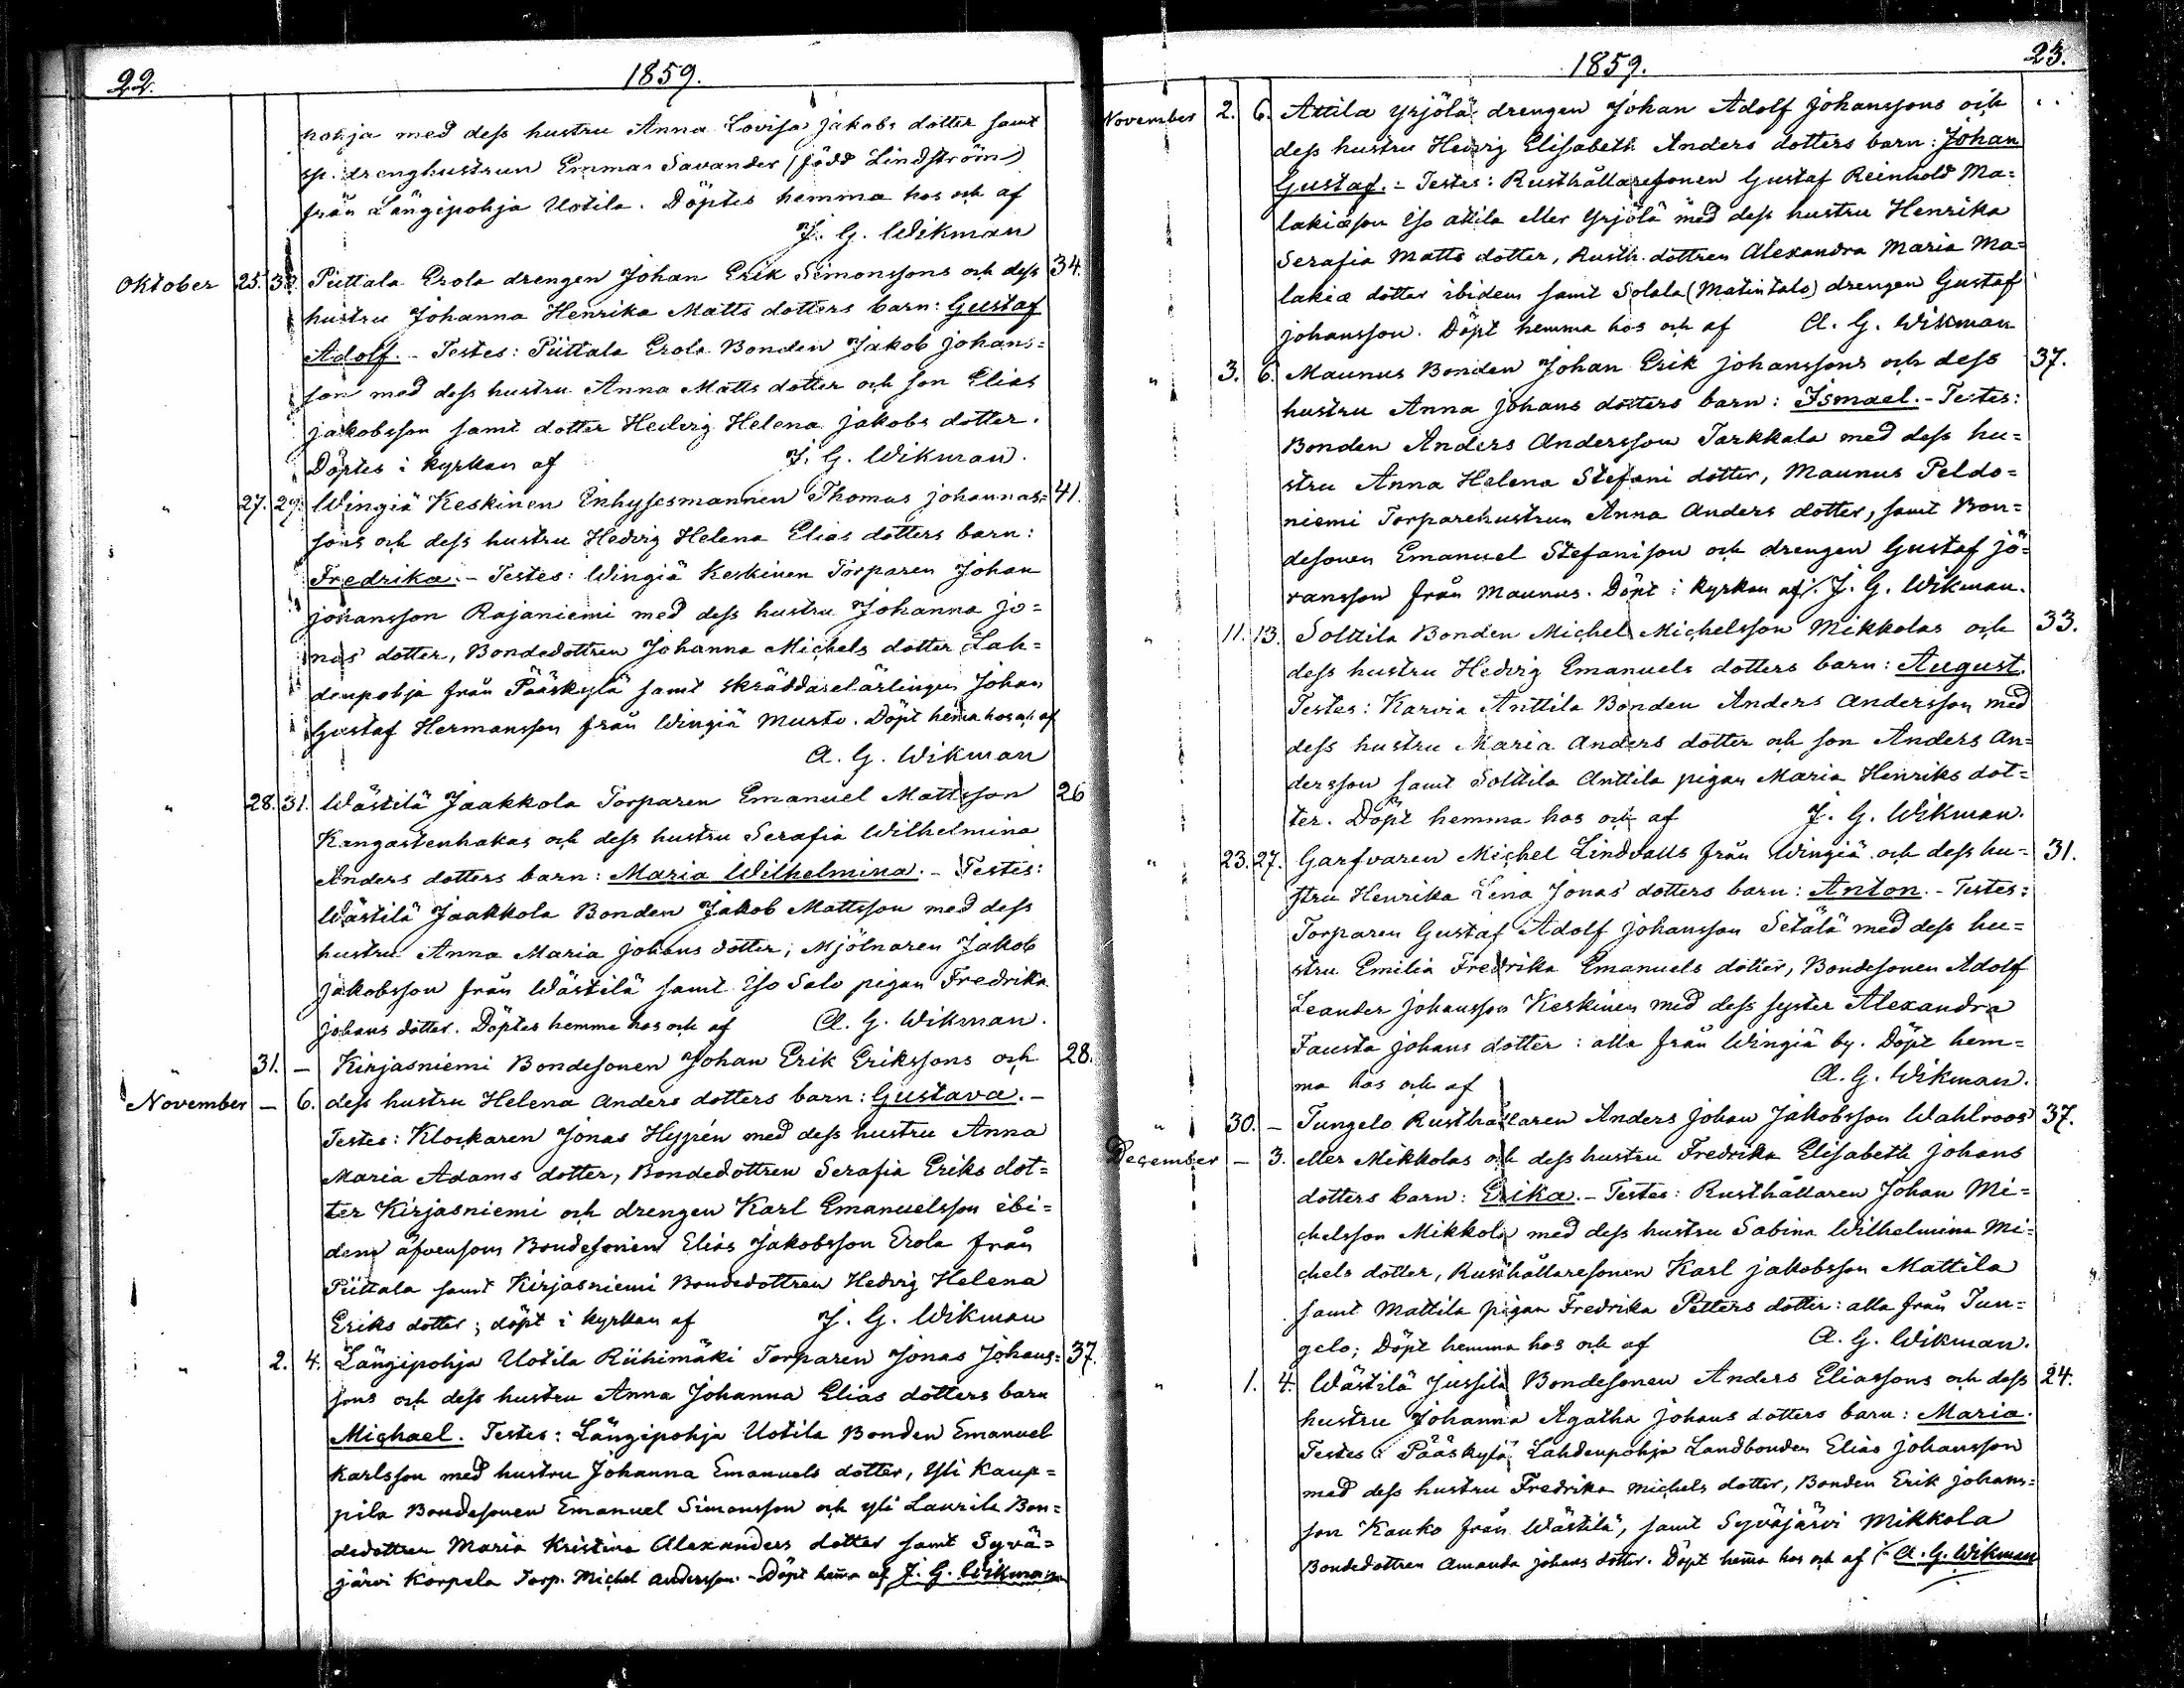 22.
1859.
pohja med dess hustru Anna Lovisa Jakobs dotter samt
sp. drenghustrun Emma Savander (född Lindström)
från Längipohja Uotila. Döptes hemma hos och af
J. G. Wikman
Oktober 25. Piittala Erola drengen Johan Erik Simonssons och dess 34.
hustru Johanna Henrika Matts dotters barn: Gustaf
Adolf. - Testes: Piittala Erola Bonden Jakob Johans=
son med dess hustru Anna Matts dotter och son Elias
Jakobsson samt dotter Hedvig Helena Jakobs dotter.
Döptes i kyrkan af J. G. Wikman.
" 27. 29. Wingiä Keskinen Inhysesmannen Thomas Johannas= 41.
sons och dess hustru Hedvig Helena Elias dotters barn:
Fredrika. - Testes: Wingiä Keskinen Torparen Johan
Johansson Rajaniemi med dess hustru Johanna Jo=
nas dotter, Bondedottren Johanna Michels dotter Lah=
denpohja från Pääskylä samt skräddarelärlingen Johan
Gustaf Hermansson från Wingiä Musto. Döpt hema hos och af
A. G. Wikman
" 28. 31. Wästilä Jaakkola Torparen Emanuel Mattsson 26
Kangastenhakas och dess hustru Serafia Wilhelmina
Anders dotters barn: Maria Wilhelmina. - Testes:
Wästilä Jaakkola Bonden Jakob Mattsson med dess
hustru Anna Maria Johans dotter, Mjölnaren Jakob
Jakobsson från Wästilä samt Iso Salo pigan Fredrika
Johans dotter. Döptes hemma hos och af A. G. Wikman.
31. - Kirjasniemi Bondesonen Johan Erik Erikssons och 28.
November - 6. dess hustru Helena Anders dotters barn: Gustava. -
Testes: Klockaren Jonas Hyrén med dess hustru Anna
Maria Adams dotter, Bondedottren Serafia Eriks dot=
ter Kirjasniemi och drengen Karl Emanuelsson ibi=
dem äfvensom Bondesonen Elias Jakobsson Erola från
Piittala samt Kirjasniemi Bondedottren Hedvig Helena
Eriks dotter; döpt i kyrkan af J. G. Wikman
" 2. 4. Längipohja Uotila Riihimäki Torparen Jonas Johans= 37.
sons och dess hustru Anna Johanna Elias dotters barn
Michael. Testes: Längipohja Uotila Bonden Emanuel
Karlsson med hustru Johanna Emanuels dotter, Yli Kaup=
pila Bondesonen Emanuel Simonsson och Yli Laurila Bon=
dedottren Maria Kristina Alexanders dotter samt Syvä=
järvi Korpela Torp. Michel Andersson. - Döpt hema af J. G. Wikman
1859.
23.
November 2. 6. Attila Yrjölä drengen Johan Adolf Johanssons och
dess hustru Hedvig Elisabeth Anders dotters barn: Johan
Gustaf. - Testes: Rusthållaresonen Gustaf Reinhold Ma=
lakiæson Iso Attila eller Yrjölä med dess hustru Henrika
Serafia Matts dotter, Rusth. dottren Alexandra Maria Ma=
lakiæ dotter ibidem samt Solala (Matintalo) drengen Gustaf
Johansson. Döpt hemma hos och af A. G. Wikman
" 3. 6. Maunus Bonden Johan Erik Johanssons och dess 37.
hustru Anna Johans dotters barn: Ismael. - Testes:
Bonden Anders Andersson Tarkkala med dess hu=
stru Anna Helena Stefani dotter, Maunus Peldo=
niemi Torparehustrun Anna Anders dotter, samt Bon=
desonen Emanuel Stefanison och drengen Gustaf Jö=
ransson från Maunus. Döpt i kyrkan af J. G. Wikman.
" 11. 13. Solttila Bonden Michel Michelsson Mikkolas och 33.
dess hustru Hedvig Emanuels dotters barn: August.
Testes: Karvia Anttila Bonden Anders Andersson med
dess hustru Maria Anders dotter och son Anders An=
dersson samt Solttila Anttila pigan Maria Henriks dot=
ter. Döpt hemma hos och af J. G. Wikman.
" 23. 27. Garfvaren Michel Lindvalls från Wingiä och dess hu= 31.
stru Henrika Lena Jonas dotters barn: Anton. - Testes:
Torparen Gustaf Adolf Johansson Setälä med dess hu=
stru Emilia Fredrika Emanuels dotter, Bondesonen Adolf
Leander Johansson Keskinen med dess syster Alexandra
Fausta Johans dotter: alla från Wingiä by. Döpt hem=
ma hos och af A. G. Wikman.
" 30. - Tungelo Rusthållaren Anders Johan Jakobsson Wahlroos 37.
December - 3. eller Mikkolas och dess hustru Fredrika Elisabeth Johans
dotters barn: Erika. - Testes: Rusthållaren Johan Mi=
chelsson Mikkola med dess hustru Sabina Wilhelmina Mi=
chels dotter, Rusthållaresonen Karl Jakobsson Mattila
samt Mattila pigan Fredrika Petters dotter: alla från Tun=
gelo; Döpt hemma hos och af A. G. Wikman.
" 1. 4. Wästilä Jussila Bondesonen Anders Eliassons och dess 24.
hustru Johanna Agatha Johans dotters barn: Maria.
Testes: Pääskylä Lahdenpohja Landbonden Elias Johansson
med dess hustru Fredrika Michels dotter, Bonden Erik Johans=
son Kauko från Wästilä, samt Syväjärvi Mikkola
Bondedottren Amanda Johans dotter. Döpt hema hos och af A. G. Wikman